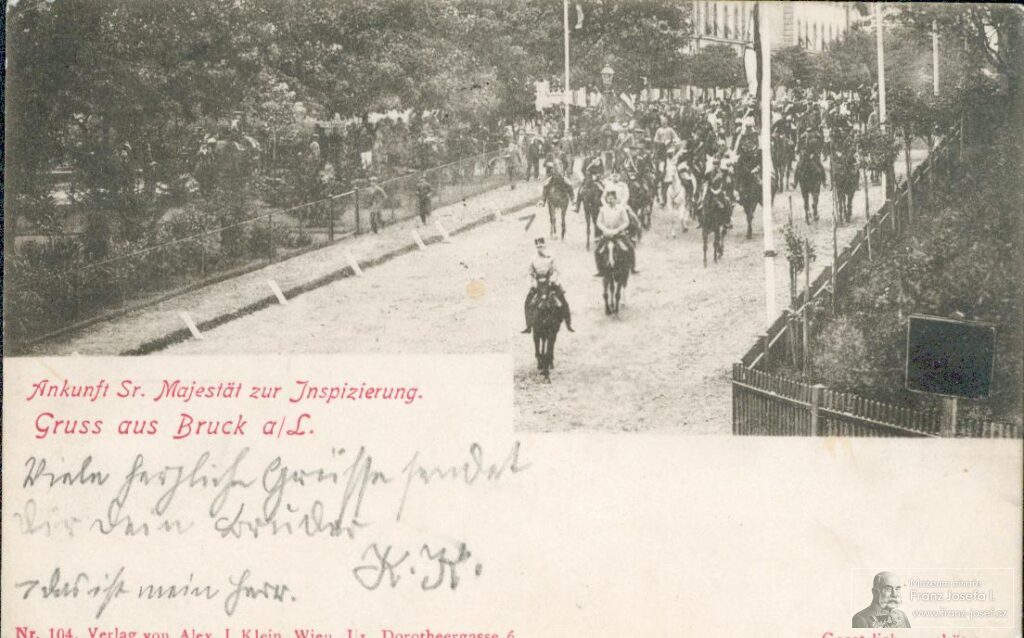 Ankunft Sr. Majestät zur Inspizierung.
Gruss aus Bruck a/L.
Viele herzliche Grüsse sendet
dir dein Bruder
K. K.
7 das ist mein Herr.
Nr. 104. Verlag von Alex. J. Klein, Wien, Dorotheergasse 6.
Muzeum císaře
Franz Josefa I.
www.franz-josef.cz